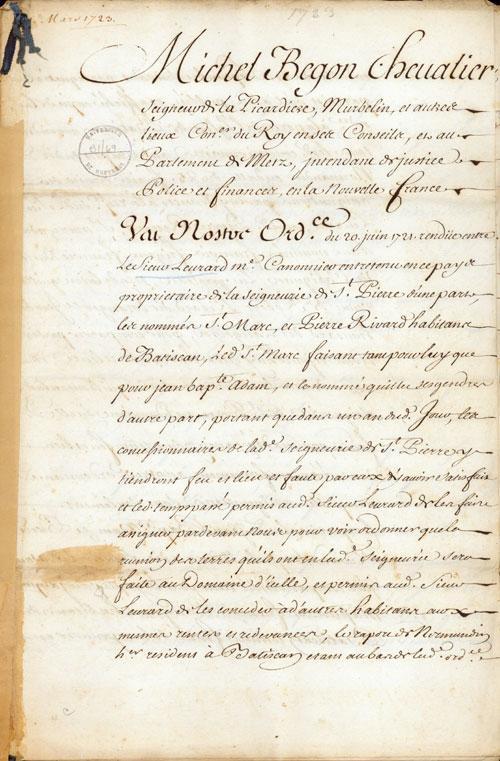 Mars 1723.
1723
Michel Begon Chevalier
Seigneur de la Picardiere, Murbelin, et autres
lieux Con.er du Roy en ses Conseils, et au
Parlement de Metz, jntendant de justice
Police et finances, en la Nouvelle france
Veu Nostre Ord.ce du 20 juin 1721 rendüe entre
Le Sieur Levrard m.e Canonnier entretenu en ce pays
proprietaire de la seigneurie de S.t Pierre d'une part,
les nommés S.t Marc, et Pierre Rivard habitans
de Batiscan, led. S.t Marc faisant tant pour luy que
pour jean bap.te Adam, et le nommé quillet ses gendres
d'autre part, portant que dans un an dud. Jour, les
concessionnaires de lad.e Seigneurie de S.t Pierre y
tiendront feu et lieu et faute par eux d'y avoir satisfait
et led. temps passé permis aud. Sieur Levrard de les faire
assigner pardevant Nous pour voir ordonner que la
reunion des terres qu'ils ont en lad. Seigneurie sera
faite au Domaine d'icelle, et permis aud. Sieur
Levrard de les conceder a d'autres habitans aux
mesmes rentes et redevances, le raport de Normandin
h.er resident à Batiscan estant au bas de lad. ord.ce